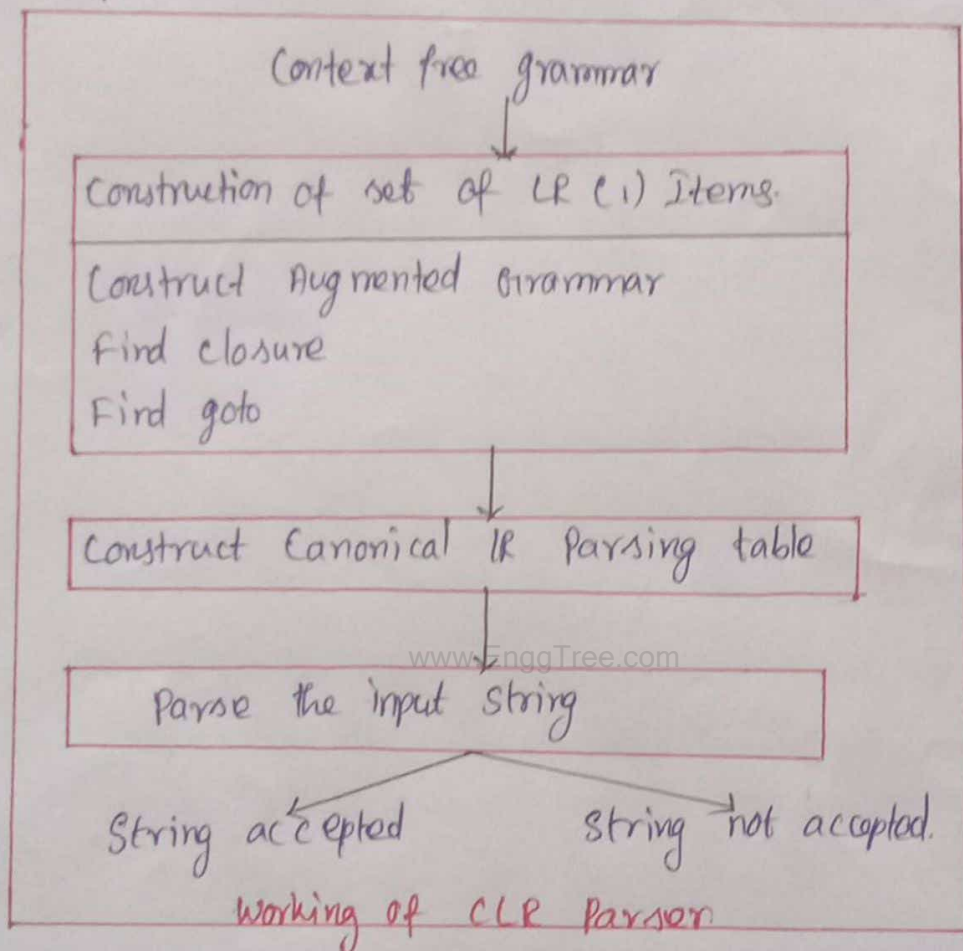 Context free grammar
Construction of set of LR (1) Items.
Construct Augmented Grammar
Find closure
Find goto
Construct Canonical LR Parsing table
www.EnggTree.com
Parse the input string
String accepted
String not accepted.
Working of CLR Parser